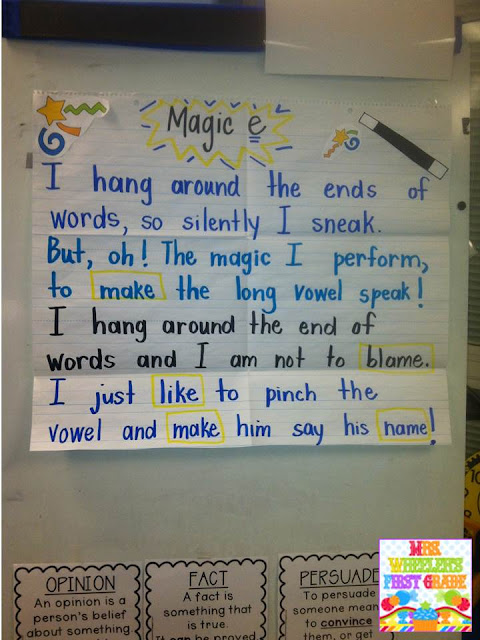 Magic e
I hang around the ends of
words, so silently I sneak.
But, oh! The magic I perform,
to make the long vowel speak!
I hang around the end of
words and I am not to blame.
I just like to pinch the
vowel and make him say his name!
OPINION
An opinion is a
person's belief
about something
FACT
A fact is
something that
is true.
It can be proved
PERSUADE
To persuade
someone mean
to convince
them, or get
MRS.
WHEELER'S
FIRST GRADE